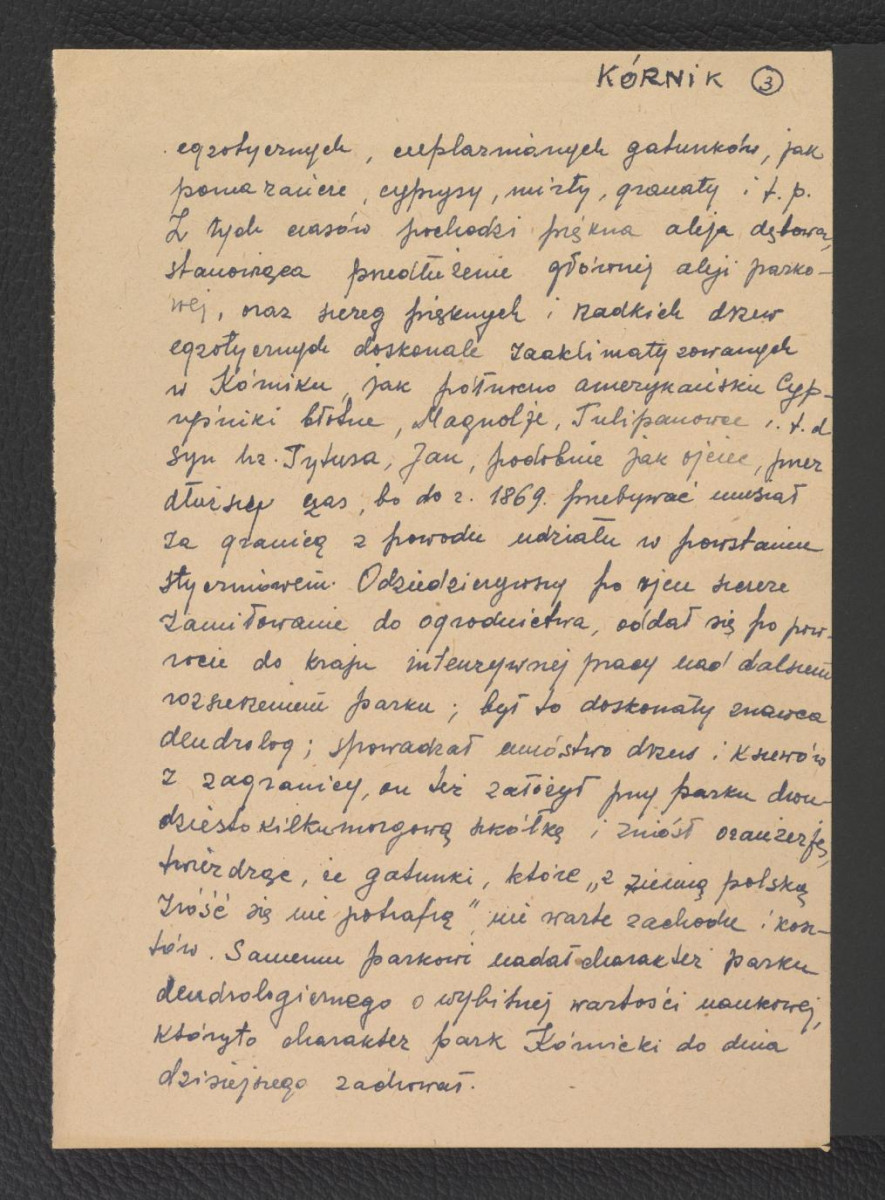 KÓRNIK 3
egzotycznych, cieplarnianych gatunków, jak
pomarańcze, cyprysy, mirty, granaty i t. p.
Z tych czasów pochodzi piękna aleja dębowa,
stanowiąca przedłużenie głównej aleji parko-
wej, oraz szereg pięknych i rzadkich drzew
egzotycznych doskonale zaaklimatyzowanych
w Kórniku, jak północno amerykańskie Cyp-
ryśniki błotne, Magnolje, Tulipanowce i. t. d
Syn hr. Tytusa, Jan, podobnie jak ojciec, przez
dłuższy czas, bo do r. 1869. przebywać musiał
za granicą z powodu udziału w powstaniu
styczniowem. Odziedziczywszy po ojcu szczere
zamiłowanie do ogrodnictwa, oddał się po pow-
rocie do kraju intenzywnej pracy nad dalszem
rozszerzeniem parku; był to doskonały znawca
dendrolog; spowadzał mnóstwo drzew i krzewów
z zagranicy, on też założył przy parku dwu-
dziestokilkumorgową szkółkę i zniósł oranżerję,
twierdząc, że gatunki, które „z ziemią polską
zróść się nie potrafią", nie warte zachodu i kosz-
tów. Samemu parkowi nadał charakter parku
dendrologicznego o wybitnej wartości naukowej,
któryto charakter park Kórnicki do dnia
dzisiejszego zachował.